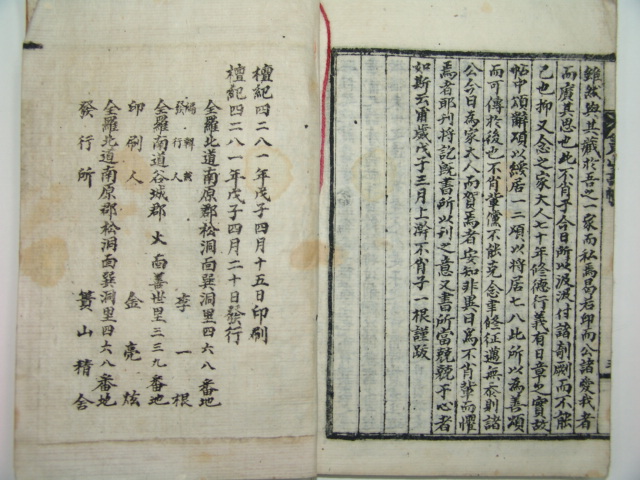 雖然與其藏於吾之一家而私焉曷若印而公諸愛我者
而廣其思也此不肖子今日所以汲汲付諸剞劂而不能
已也抑又念之家大人七十年修德行義有日章之實故
帖中頌辭頭以綏居一二頌以將居七八此所以為善頌
而可傳於後也不肖輩儻不能克念聿修征邁無忝則諸
公今日為家大人而賀焉者安知非異日為不肖輩而懼
焉者耶剞將訖旣書所以刊之意又書所當兢兢于心者
如斯云甭歲戊子三月上澣不肖子一根謹跋
檀紀四二八一年戊子四月十五日印刷
檀紀四二八一年戊子四月二十日發行
全羅北道南原郡松洞面巽洞里四六八番地
編輯兼
發行人 李一根
全羅南道谷城郡 火面善世里三三九番地
印刷人 金亮炫
全羅北道南原郡松洞面巽洞里四六八番地
發行所 蕢山精舍